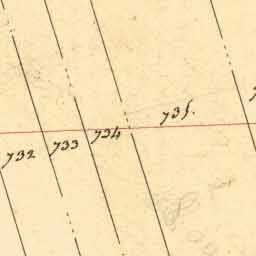 732 733 734 735.